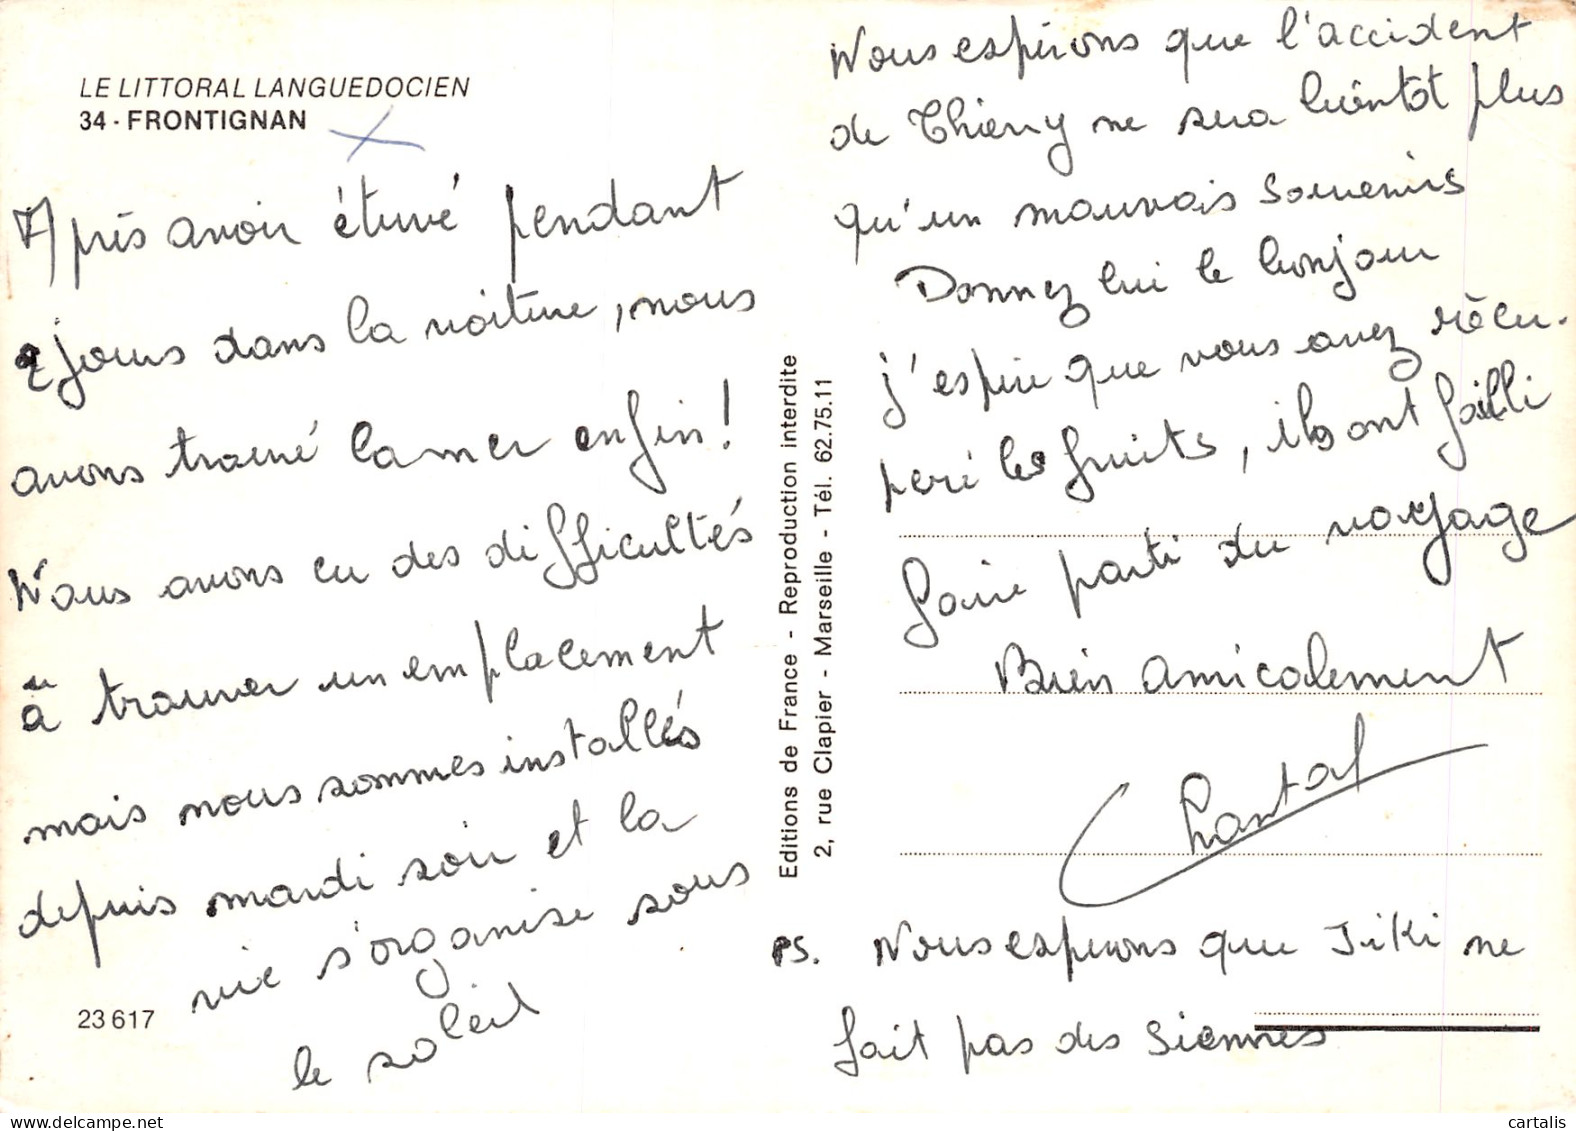 LE LITTORAL LANGUEDOCIEN
34 - FRONTIGNAN
Après avoir étuvé pendant
2 jours dans la voiture, nous
avons trouvé la mer enfin!
Nous avons eu des difficultés
à trouver un emplacement
mais nous sommes installés
depuis mardi soir et la
vie s'organise sous
le soleil
23 617
Editions de France - Reproduction interdite
2, rue Clapier - Marseille - Tél. 62.75.11
Nous espérons que l'accident
de Thierry ne sera bientôt plus
qu'un mauvais souvenirs
Donnez lui le bonjour
j'espère que vous avez récu-
peré les fruits, ils ont failli
faire parti du voyage
Bien amicalement
Chantal
PS. Nous esperons que Jiki ne
fait pas des siennes
cartalis